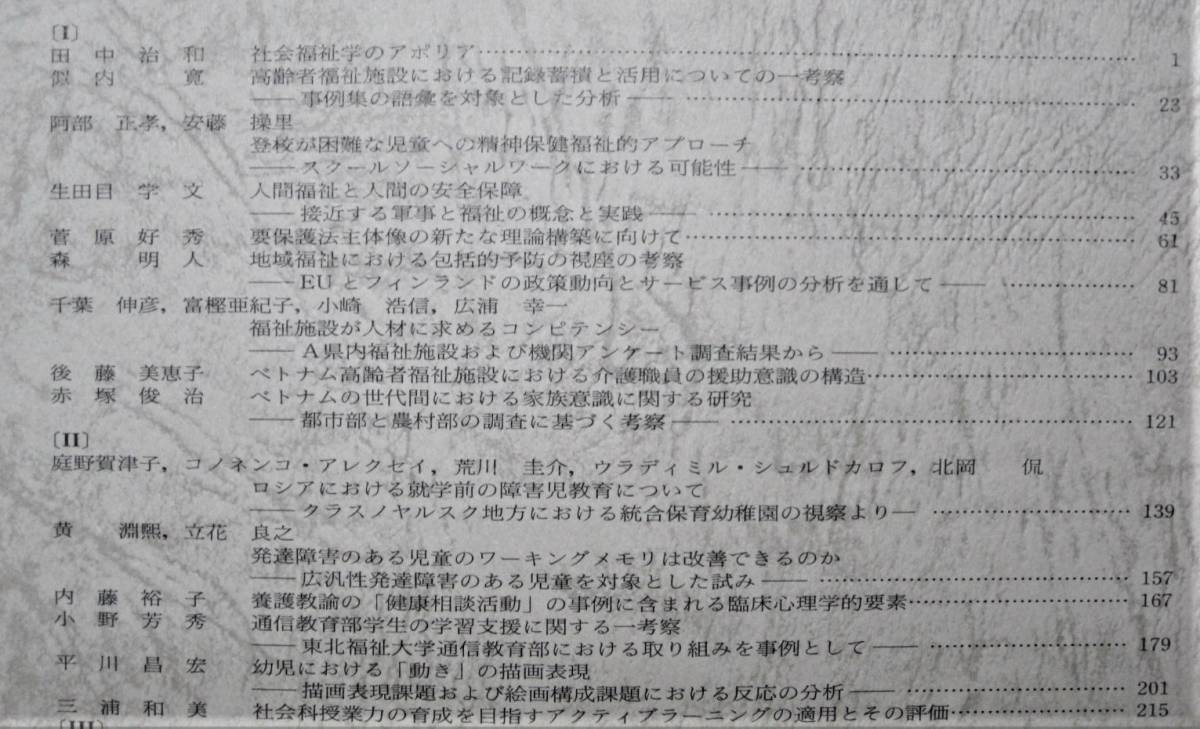 〔I〕
田中治和 社会福祉学のアポリア……………………………………………………………………… 1
似内寛 高齢者福祉施設における記録蓄積と活用についての一考察
――事例集の語彙を対象とした分析―― ………………………………………………… 23
阿部 正孝，安藤 操里
登校が困難な児童への精神保健福祉的アプローチ
――スクールソーシャルワークにおける可能性―― …………………………………… 33
生田目学文 人間福祉と人間の安全保障
――接近する軍事と福祉の概念と実践―― ……………………………………………… 45
菅原好秀 要保護法主体像の新たな理論構築に向けて…………………………………………… 61
森明人 地域福祉における包括的予防の視座の考察
――EUとフィンランドの政策動向とサービス事例の分析を通して―― ……………… 81
千葉 伸彦，富樫亜紀子，小崎 浩信，広浦 幸一
福祉施設が人材に求めるコンピテンシー
――A県内福祉施設および機関アンケート調査結果から―― ………………………… 93
後藤美恵子 ベトナム高齢者福祉施設における介護職員の援助意識の構造…………………… 103
赤塚俊治 ベトナムの世代間における家族意識に関する研究
――都市部と農村部の調査に基づく考察―― …………………………………………… 121
〔II〕
庭野賀津子，コノネンコ・アレクセイ，荒川 圭介，ウラディミル・シュルドカロフ，北岡 侃
ロシアにおける就学前の障害児教育について
――クラスノヤルスク地方における統合保育幼稚園の視察より― …………………… 139
黄 淵熙，立花 良之
発達障害のある児童のワーキングメモリは改善できるのか
――広汎性発達障害のある児童を対象とした試み―― ………………………………… 157
内藤裕子 養護教諭の「健康相談活動」の事例に含まれる臨床心理学的要素………………… 167
小野芳秀 通信教育部学生の学習支援に関する一考察
――東北福祉大学通信教育部における取り組みを事例として―― …………………… 179
平川昌宏 幼児における「動き」の描画表現
――描画表現課題および絵画構成課題における反応の分析―― ……………………… 201
三浦和美 社会科授業力の育成を目指すアクティブラーニングの適用とその評価…………… 215
〔III〕